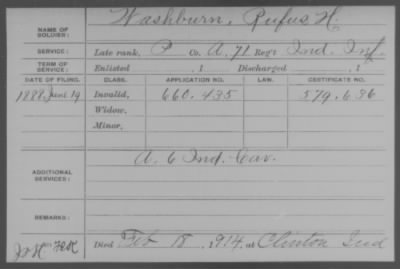 NAME OF SOLDIER: Washburn, Rufus H.
SERVICE: Late rank, P Co. A, 71 Reg't Ind. Inf.
TERM OF SERVICE: Enlisted , 1 Discharged , 1
DATE OF FILING. CLASS. APPLICATION NO. LAW. CERTIFICATE NO.
1888 June 19 Invalid, 660.435 579.636
Widow,
Minor,
ADDITIONAL SERVICES: A. 6 Ind. Cav.
REMARKS:
Died Feb 18, 1914, at Clinton Ind